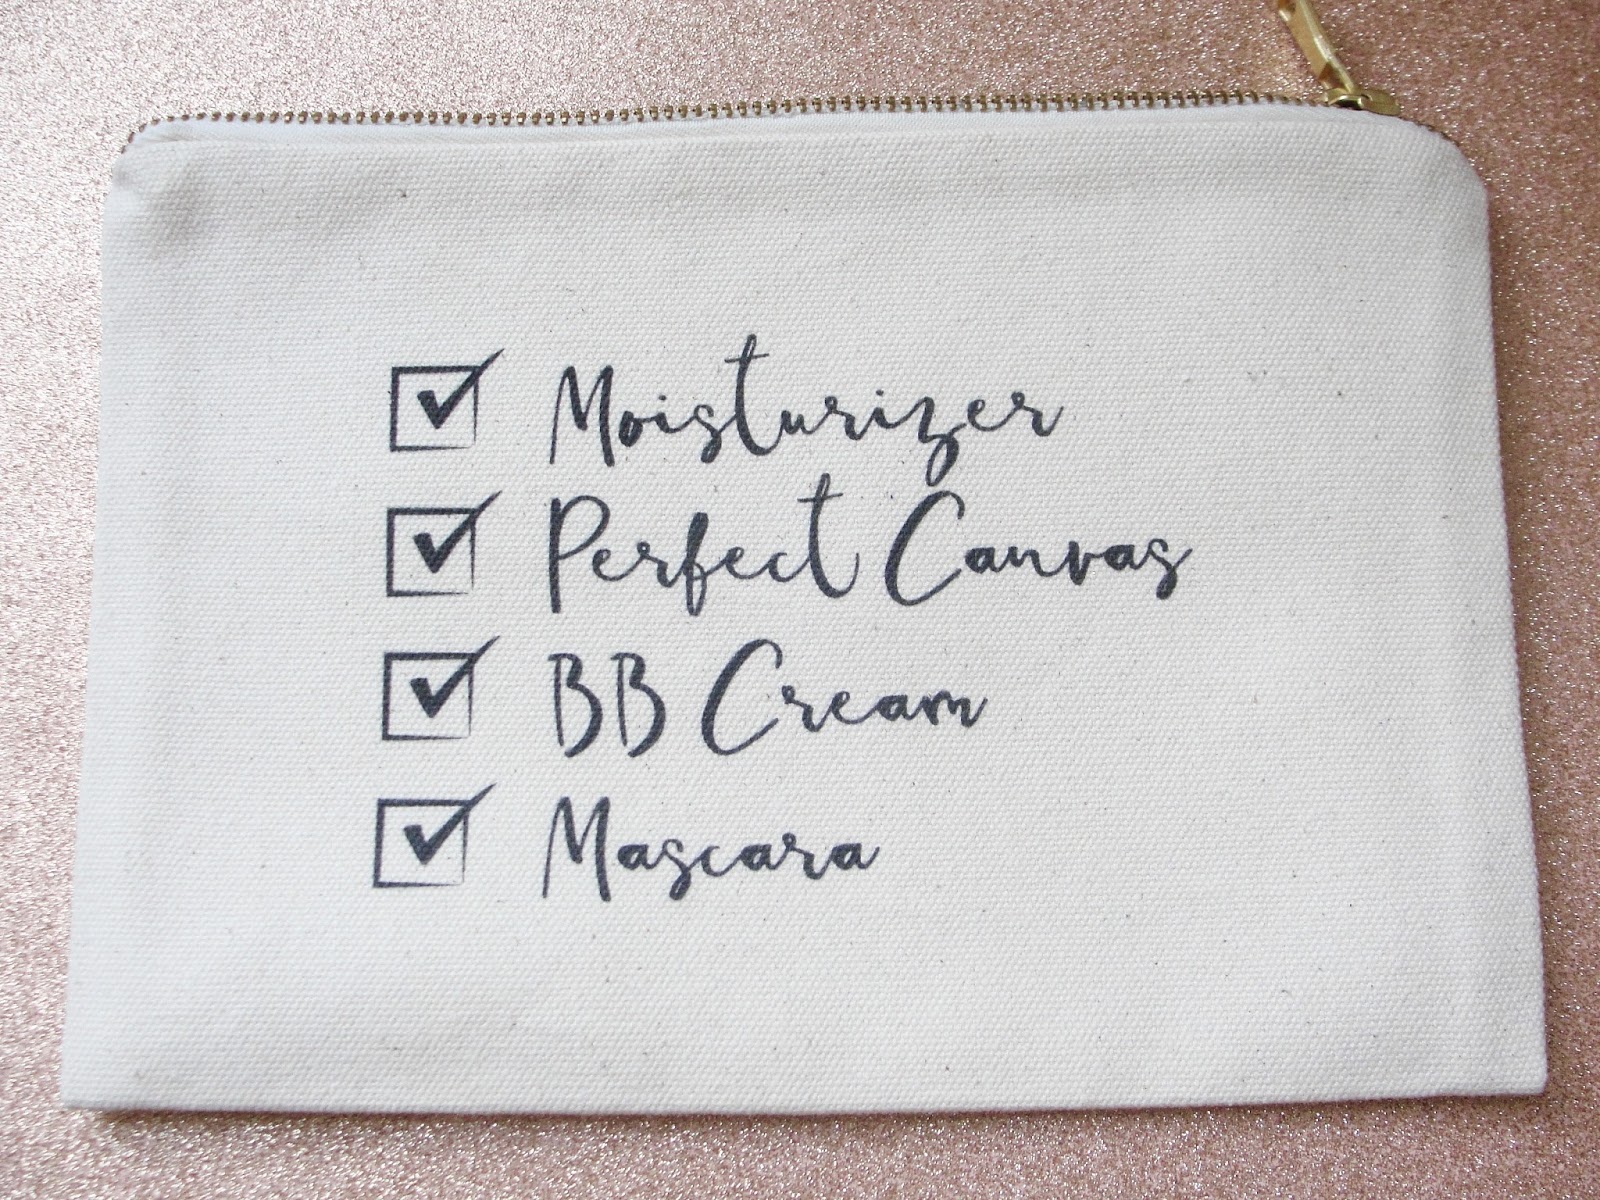 Moisturizer
Perfect Canvas
BB Cream
Mascara